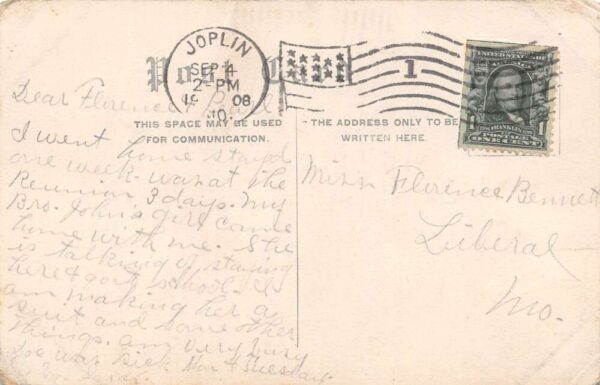 JOPLIN
SEP 4
2-PM
1908
MO.
1
Post Card
THIS SPACE MAY BE USED
FOR COMMUNICATION.
THE ADDRESS ONLY TO BE
WRITTEN HERE.
UNITED STATES OF AMERICA
FRANKLIN
1 POSTAGE 1
ONE CENT
Dear Florence
I went home stayd
one week - was at the
Reunion 3 days. My
Bro. John's girl came
home with me. She
is talking of staying
here & go to school. I
am making her a
suit and some other
things. am very busy
was sick Mon & Tuesday
Miss Florence Bennett
Liberal
Mo.